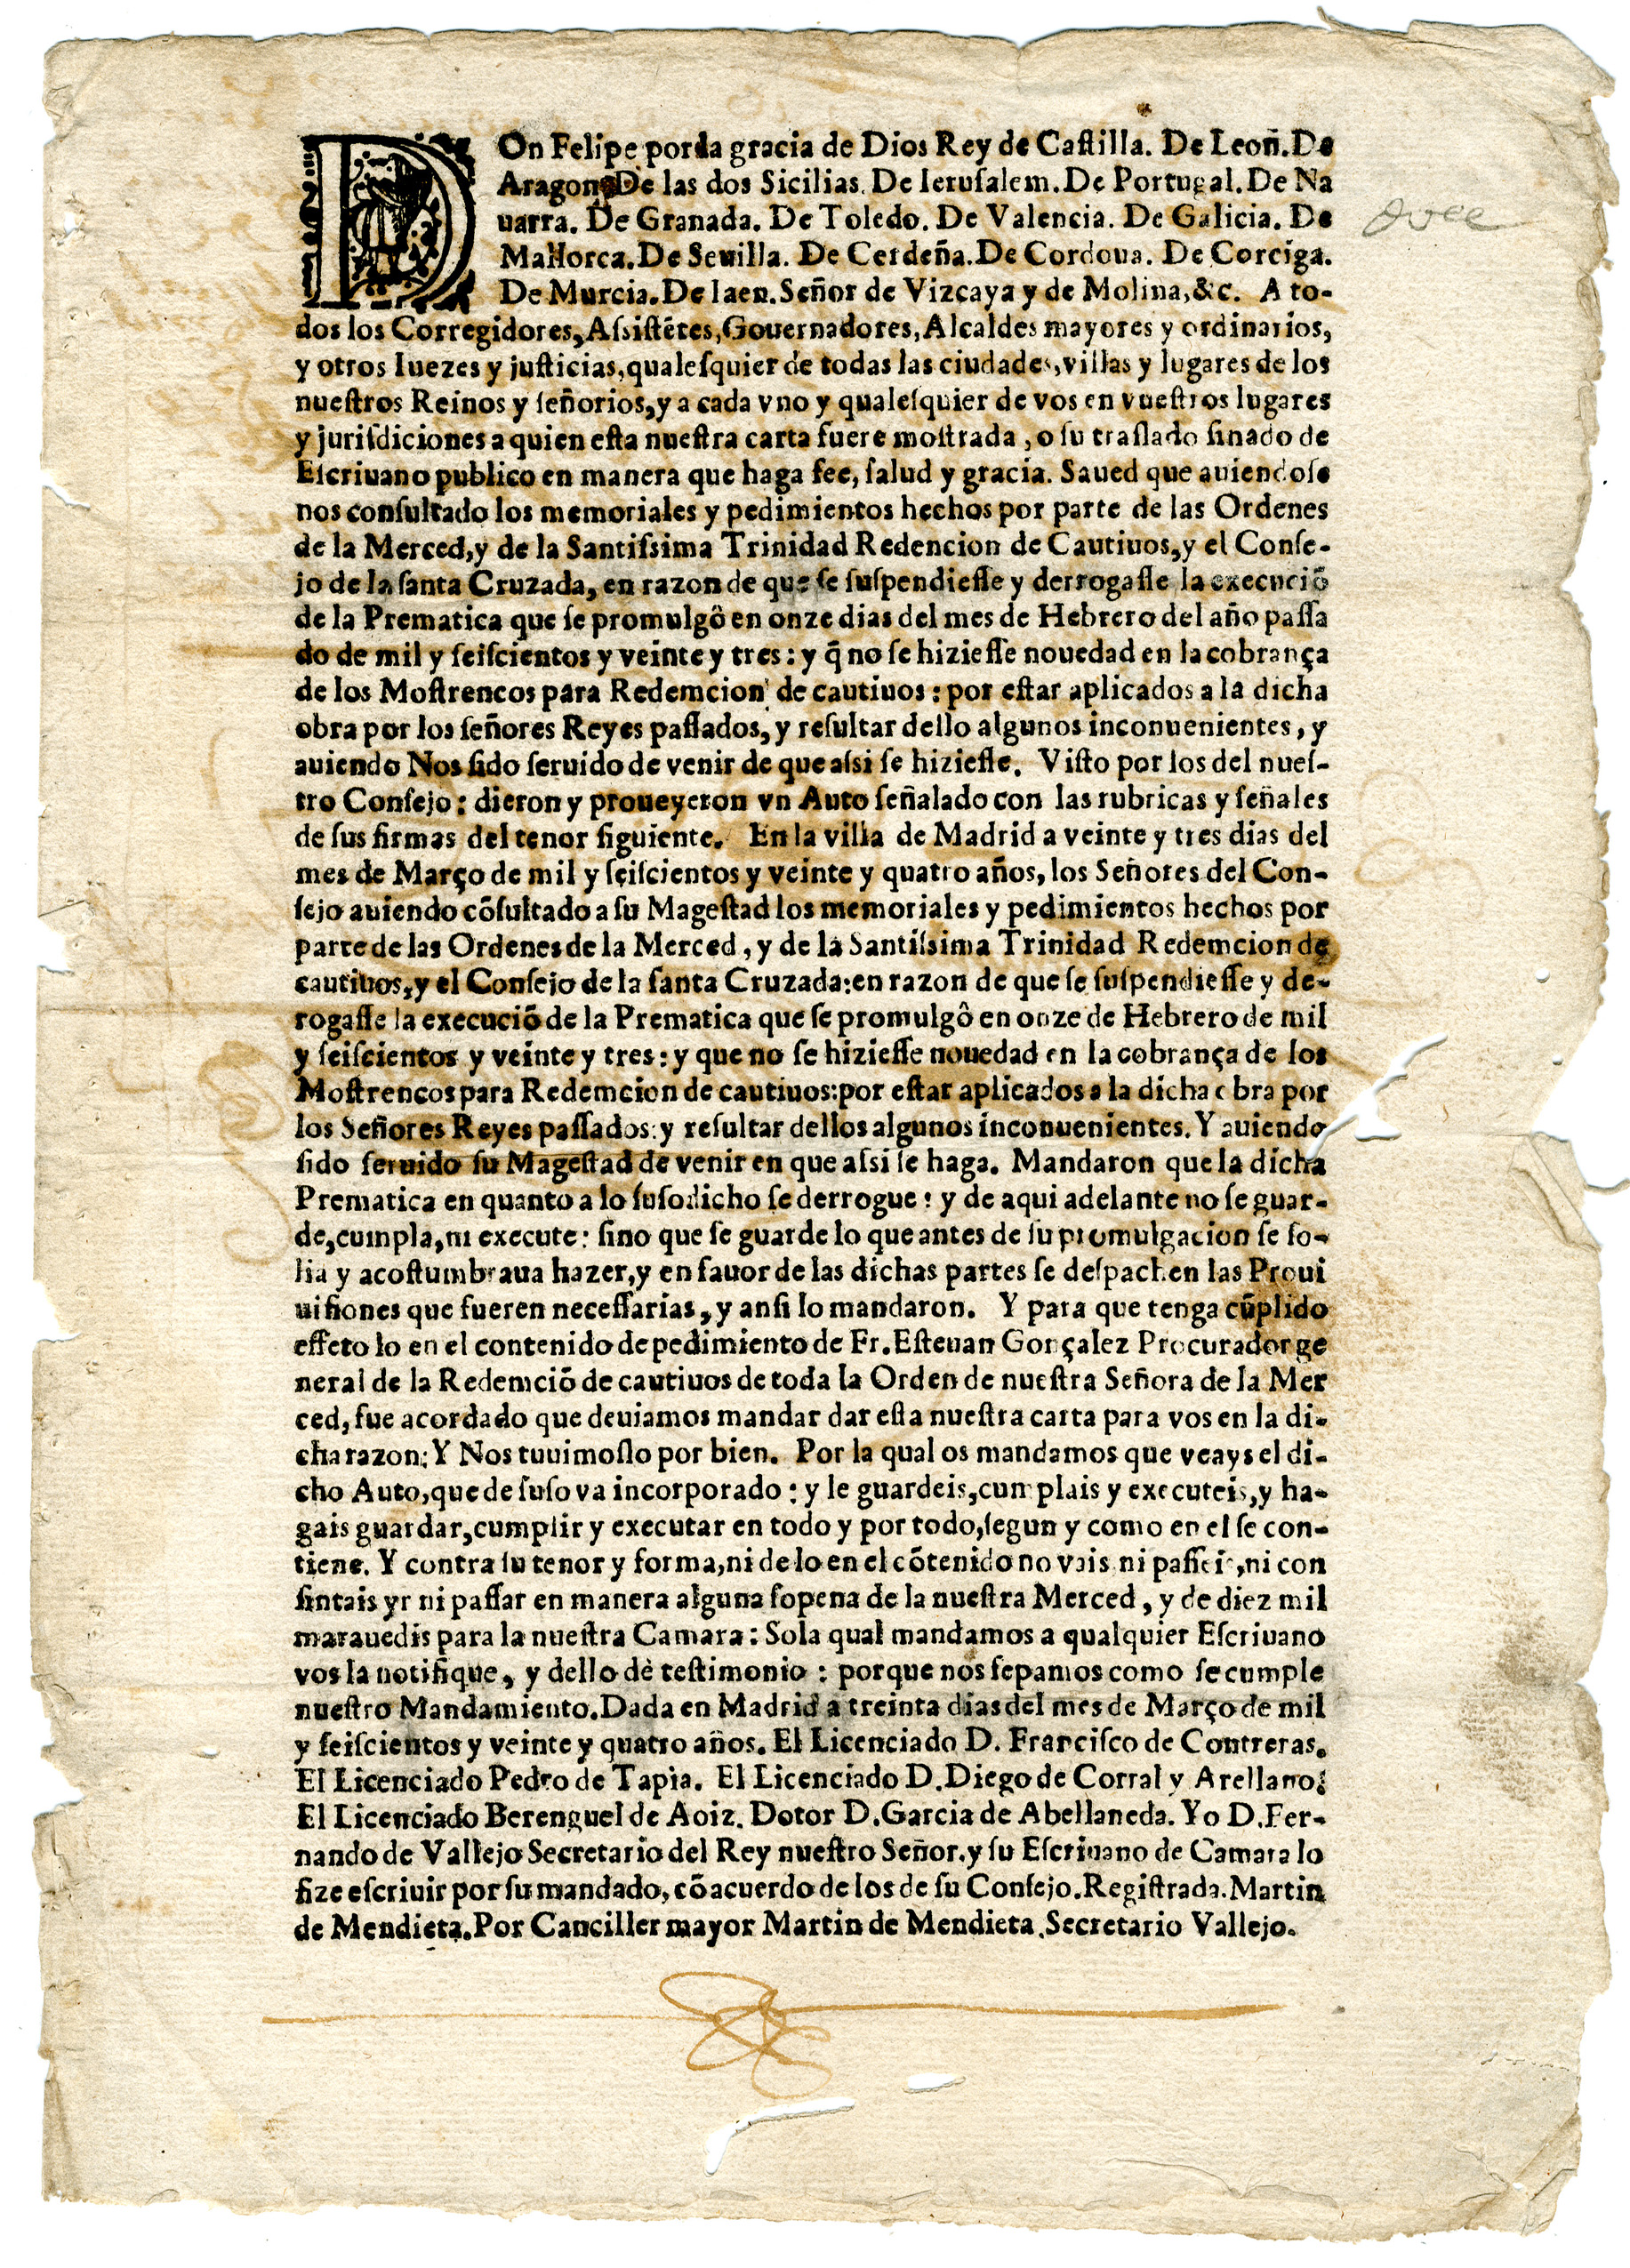 DOn Felipe por la gracia de Dios Rey de Caſtilla. De Leoñ. De
Aragon, De las dos Sicilias. De Ieruſalem. De Portugal. De Na
uarra. De Granada. De Toledo. De Valencia. De Galicia. De
Mallorca. De Seuilla. De Cerdeña. De Cordoua. De Corciga.
De Murcia. De Iaen. Señor de Vizcaya y de Molina, &c. A to-
dos los Corregidores, Aſsiſtẽtes, Gouernadores, Alcaldes mayores y ordinarios,
y otros Iuezes y juſticias, qualeſquier de todas las ciudades, villas y lugares de los
nueſtros Reinos y ſeñorios, y a cada vno y qualeſquier de vos en vueſtros lugares
y juriſdiciones a quien eſta nueſtra carta fuere moſtrada, o ſu traſlado ſinado de
Eſcriuano publico en manera que haga fee, ſalud y gracia. Saued que auiendoſe
nos conſultado los memoriales y pedimientos hechos por parte de las Ordenes
de la Merced, y de la Santiſsima Trinidad Redencion de Cautiuos, y el Conſe-
jo de la ſanta Cruzada, en razon de que ſe ſuſpendieſſe y derrogaſſe la execuciõ
de la Prematica que ſe promulgô en onze dias del mes de Hebrero del año paſſa
do de mil y ſeiſcientos y veinte y tres: y q̃ no ſe hizieſſe nouedad en la cobrança
de los Moſtrencos para Redemcion de cautiuos: por eſtar aplicados a la dicha
obra por los ſeñores Reyes paſſados, y reſultar dello algunos inconuenientes, y
auiendo Nos ſido ſeruido de venir de que aſsi ſe hizieſſe. Viſto por los del nueſ-
tro Conſejo: dieron y proueyeron vn Auto ſeñalado con las rubricas y ſeñales
de ſus firmas del tenor ſiguiente. En la villa de Madrid a veinte y tres dias del
mes de Março de mil y ſeiſcientos y veinte y quatro años, los Señores del Con-
ſejo auiendo cõſultado a ſu Mageſtad los memoriales y pedimientos hechos por
parte de las Ordenes de la Merced, y de la Santiſsima Trinidad Redemcion de
cautiuos, y el Conſejo de la ſanta Cruzada: en razon de que ſe ſuſpendieſſe y de-
rogaſſe la execuciõ de la Prematica que ſe promulgô en onze de Hebrero de mil
y ſeiſcientos y veinte y tres: y que no ſe hizieſſe nouedad en la cobrança de los
Moſtrencos para Redemcion de cautiuos: por eſtar aplicados a la dicha obra por
los Señores Reyes paſſados: y reſultar dellos algunos inconuenientes. Y auiendo
ſido ſeruido ſu Mageſtad de venir en que aſsi ſe haga. Mandaron que la dicha
Prematica en quanto a lo ſuſodicho ſe derrogue: y de aqui adelante no ſe guar-
de, cumpla, ni execute: ſino que ſe guarde lo que antes de ſu promulgacion ſe ſo-
lia y acoſtumbraua hazer, y en fauor de las dichas partes ſe deſpachen las Proui
uiſiones que fueren neceſſarias, y anſi lo mandaron. Y para que tenga cũplido
effeto lo en el contenido de pedimiento de Fr. Eſteuan Gonçalez Procurador ge
neral de la Redemciõ de cautiuos de toda la Orden de nueſtra Señora de la Mer
ced, fue acordado que deuiamos mandar dar eſta nueſtra carta para vos en la di-
cha razon: Y Nos tuuimoſlo por bien. Por la qual os mandamos que veays el di-
cho Auto, que de ſuſo va incorporado: y le guardeis, cumplais y executeis, y ha-
gais guardar, cumplir y executar en todo y por todo, ſegun y como en el ſe con-
tiene. Y contra ſu tenor y forma, ni de lo en el cõtenido no vais ni paſſeis, ni con
ſintais yr ni paſſar en manera alguna ſopena de la nueſtra Merced, y de diez mil
marauedis para la nueſtra Camara: Sola qual mandamos a qualquier Eſcriuano
vos la notifique, y dello dè teſtimonio: porque nos ſepamos como ſe cumple
nueſtro Mandamiento. Dada en Madrid a treinta dias del mes de Março de mil
y ſeiſcientos y veinte y quatro años. El Licenciado D. Franciſco de Contreras.
El Licenciado Pedro de Tapia. El Licenciado D. Diego de Corral y Arellano:
El Licenciado Berenguel de Aoiz. Dotor D. Garcia de Abellaneda. Yo D. Fer-
nando de Vallejo Secretario del Rey nueſtro Señor, y ſu Eſcriuano de Camara lo
fize eſcriuir por ſu mandado, cõ acuerdo de los de ſu Conſejo. Regiſtrada. Martin
de Mendieta. Por Canciller mayor Martin de Mendieta. Secretario Vallejo.